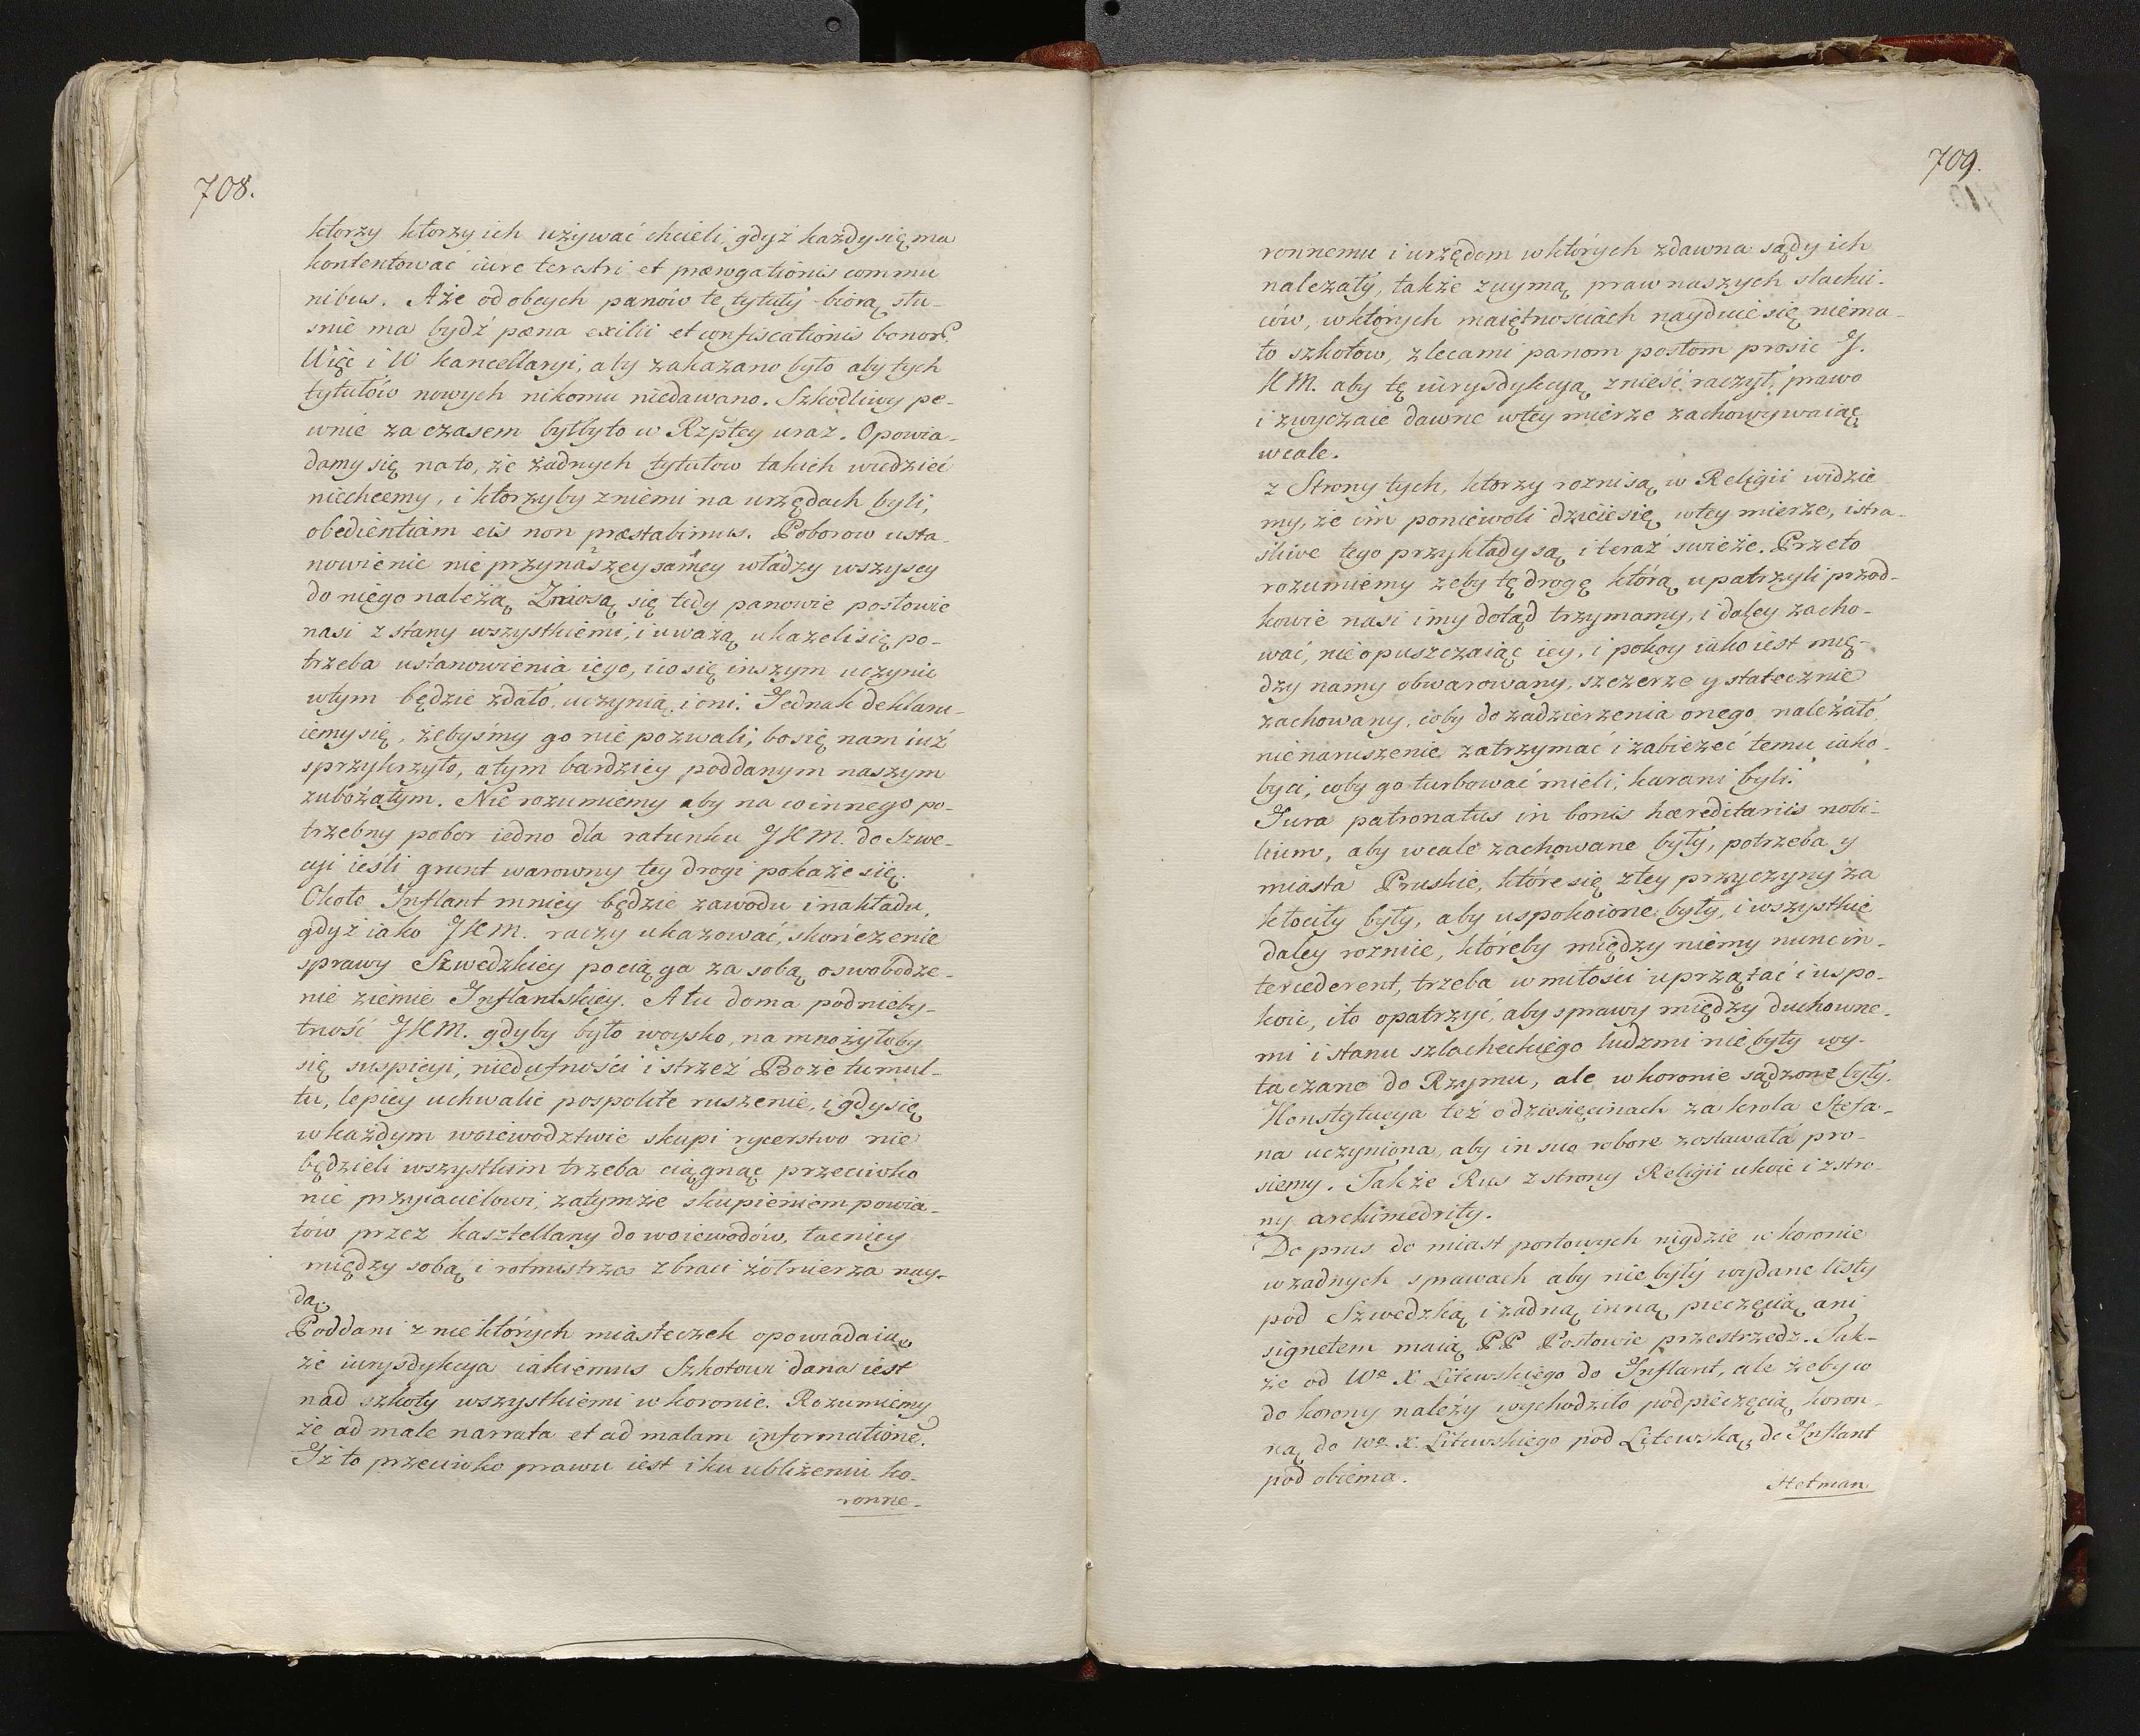 708.
ktorzy ktorzy ich używać chcieli, gdyż każdy się ma
kontentować iure terestri et prærogationis commu
nibus. Aże od obcych panów te tytuły biorą słu-
snie ma bydź pæna exilii et confiscationis bonor.
Więc i W kancellaryi, aby zakazano było aby tych
tytułów nowych nikomu niedawano. Szkodliwy pe-
wnie za czasem byłbyto w Rzpltey uraz. Opowia-
damy się na to, że żadnych tytułow takich wiedzieć
niechcemy, i ktorzyby zniemi na urzędach byli,
obedientiam eis non præstabimus. Poborow usta-
nowienie nie przy naszey samey władzy wszyscy
do niego należą. Zniosą się tedy panowie posłowie
nasi z stany wszystkiemi, i uważą ukazeli się po-
trzeba ustanowienia iego, i co się inszym uczynić
wtym będzie zdało, uczynią i oni. Jednak deklaru-
iemy się, żebyśmy go nie pozwali, bo się nam iuż
sprzykrzyło, a tym bardziey poddanym naszym
zubożałym. Nie rozumiemy aby na co innego po-
trzebny pobor iedno dla ratunku JKM. do Szwe-
cyi ieśli grunt warowny tey drogi pokaże się.
Około Inflant mniey będzie zawodu i nakładu,
gdyż iako JKM. raczy ukazować, skończenie
sprawy Szwedzkiey pociąga za sobą oswobodze-
nie ziemie Inflantskiey. A tu doma podnieby-
tność JKM. gdyby było woysko, namnożyłoby
się suspicyi, niedufności i strzeż Boże tumul-
tu, lepiey uchwalić pospolite ruszenie, i gdy się
w każdym woiewodztwie skupi rycerstwo nie
będzieli wszystkim trzeba ciągnąć przeciwko
nie przyiacielowi, zatymże skupieniem powia-
tów przez kasztellany do woiewodów, łacniey
między sobą i rotmistrza z braci żółnierza nay-
dą.
Poddani z niektórych miasteczek opowiadaią,
że iurysdykcya iakiemus Szkotowi dana iest
nad szkoty wszystkiemi w koronie. Rozumiemy
że ad male narrata et ad malam informationē.
Iż to przeciwko prawu iest i ku ubliżeniu ko-
ronne-
709.
ronnemu i urzędom w których zdawna sądy ich
należały, także zuymą praw naszych slachci-
ców, w których maiętnościach nayduie się niema-
ło szkotow, zlecami panom posłom prosić J.
KM. aby tę iurysdykcyą znieść raczył, prawo
i zwyczaie dawne wtey mierze zachowywaiąc
wcale.
z Strony tych, ktorzy rozni są w Religii widzie
my, że im poniewoli dzieie się wtey mierze, i stra-
śliwe tego przykłady są i teraz swieże. Przeto
rozumiemy zeby tę drogę którą upatrzyli przod-
kowie nasi i my dotąd trzymamy, i daley zacho-
wać, nie opuszczaiąc iey, i pokoy iako iest mię-
dzy namy obwarowany, szczerze y statecznie
zachowany, coby do zadzierzenia onego należało,
nienaruszenie zatrzymać i zabieżeć temu iako-
by ci, coby go turbować mieli, karani byli.
Jura patronatus in bonis hæreditariis nobi-
lium, aby wcale zachowane były, potrzeba y
miasta Pruskie, które się ztey przyczyny za
kłociły były, aby uspokoione były, i wszystkie
daley roznice, któreby między niemy nunc in-
tercederent, trzeba w miłości uprzątać i uspo-
koić, i to opatrzyć, aby sprawy między duchowne-
mi i stanu szlacheckiego ludzmi nie były wy-
taczane do Rzymu, ale w koronie sądzone były.
Konstytucya też o dziesięcinach za krola Stefa-
na uczyniona, aby in suo robore zostawała pro-
siemy. Także Rus z strony Religii ukoić i z stro-
ny archimedrity.
Do prus do miast portowych nigdzie w koronie
w żadnych sprawach aby nie były wydane listy
pod Szwedzką i żadną inną pieczęcią ani
signetem maią PP Posłowie przestrzedz. Tak-
że od Wo X Litewskiego do Inflant, ale żeby w
do korony należy wychodziło pod pieczęcią koron-
ną do Wo. X. Litewskiego pod Litewską, do Inflant
pod obiema.
Hetman